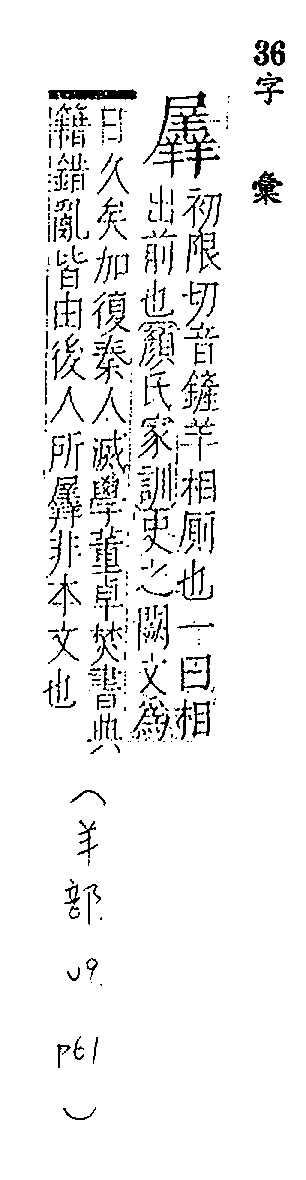 36
字彙
羼
初限切音鏟羊相厠也一曰相
出前也顏氏家訓史之闕文為
日久矣加復秦人滅學董卓焚書典
籍錯亂皆由後人所羼非本文也
(羊部 v9. p61)